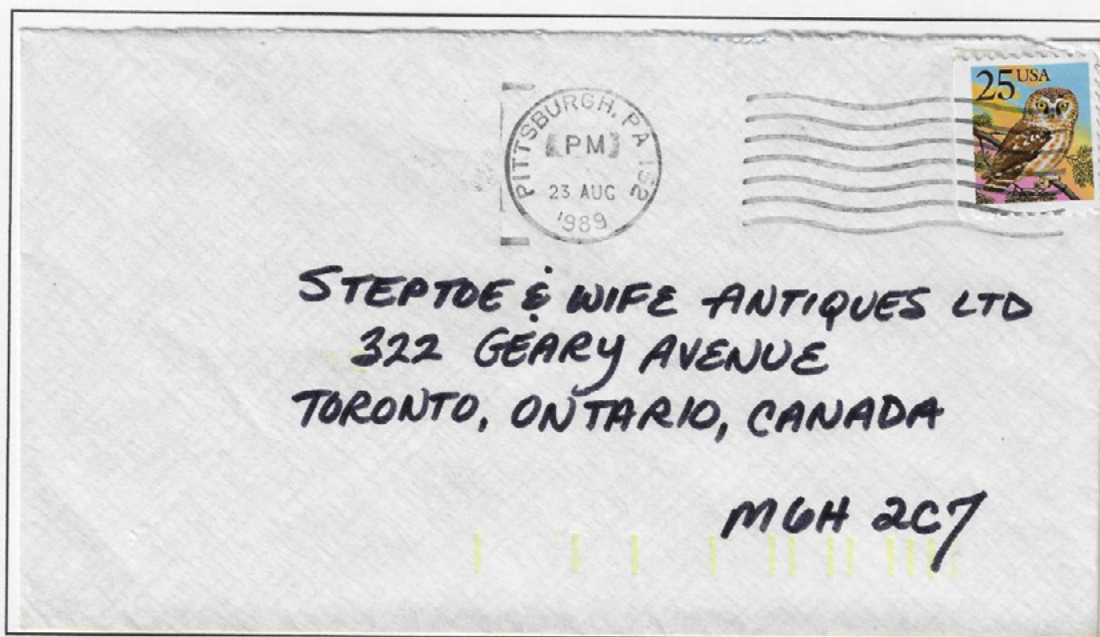 PITTSBURGH, PA 152
PM
23 AUG
1989
25 USA
STEPTOE & WIFE ANTIQUES LTD
322 GEARY AVENUE
TORONTO, ONTARIO, CANADA
M6H 2C7